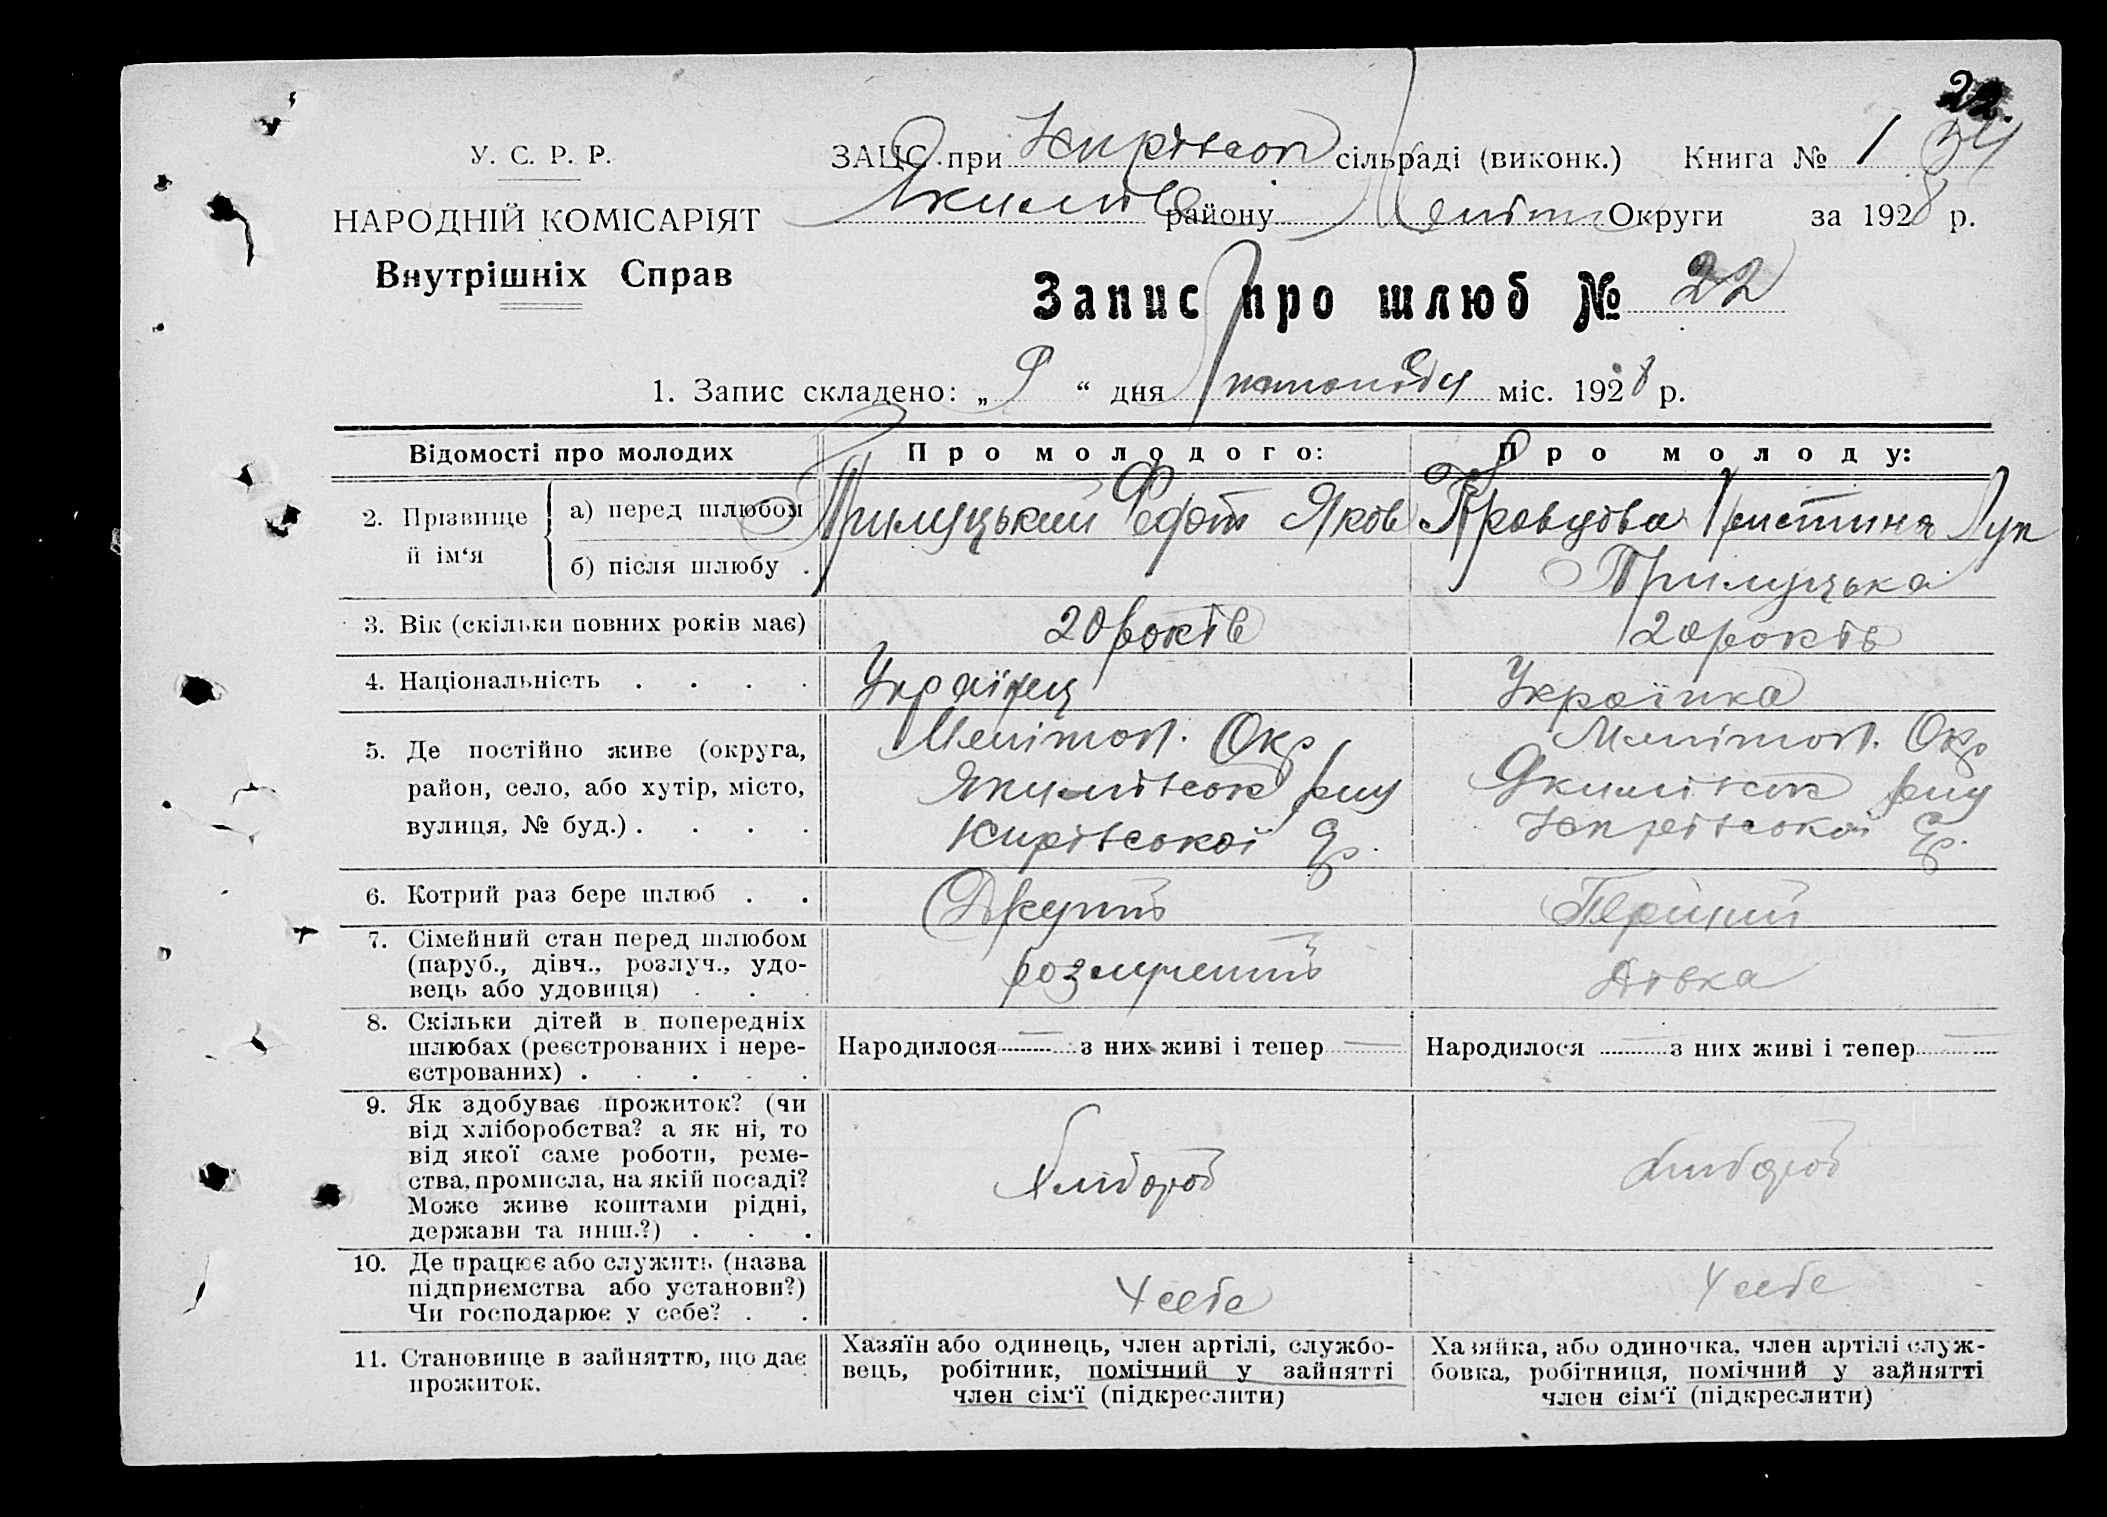 22.
У. С. Р. Р.
ЗАЦС при Кирівськ сільраді (виконк.) Книга № 1 34
НАРОДНІЙ КОМІСАРІЯТ
Внутрішніх Справ
Якимів району Меліт Округи за 1928 р.
Запис про шлюб № 22
1. Запис складено: „ 9 “ дня міс. 1928 р.
Відомості про молодих
Про молодого:
Про молоду:
2. Прізвище й ім‘я
а) перед шлюбом
Прилуцький Федот Яков
Кравцова Христиня Лук
б) після шлюбу .
Прилуцька
3. Вік (скільки повних років має)
20 років
20 років
4. Національність . . . .
Українец
Українка
5. Де постійно живе (округа,
район, село, або хутір, місто,
вулиця, № буд.) . . . .
Мелітоп. Окр
Якимівськ рну
Кирівської
Мелітоп. Окр
Якимівськ рну
Кирівської
6. Котрий раз бере шлюб . .
Другий
Перший
7. Сімейний стан перед шлюбом
(паруб., дівч., розлуч., удо-
вець або удовиця) . . .
розлучений
Дівка
8. Скільки дітей в попередніх
шлюбах (реєстрованих і нере-
єстрованих) . . . . .
Народилося — з них живі і тепер —
Народилося — з них живі і тепер —
9. Як здобуває прожиток? (чи
від хліборобства? а як ні, то
від якої саме роботи, реме-
ства, промисла, на якій посаді?
Може живе коштами рідні,
держави та инш.?) . . .
Хлібороб
Хлібороб
10. Де працює або служить (назва
підприємства або установи?)
Чи господарює у себе? . .
У себе
У себе
11. Становище в зайняттю, що дає
прожиток.
Хазяїн або одинець, член артілі, службо-
вець, робітник, помічний у зайнятті
член сім‘ї (підкреслити)
Хазяйка, або одиночка, член артілі служ-
бовка, робітниця, помічний у зайнятті
член сім‘ї (підкреслити)